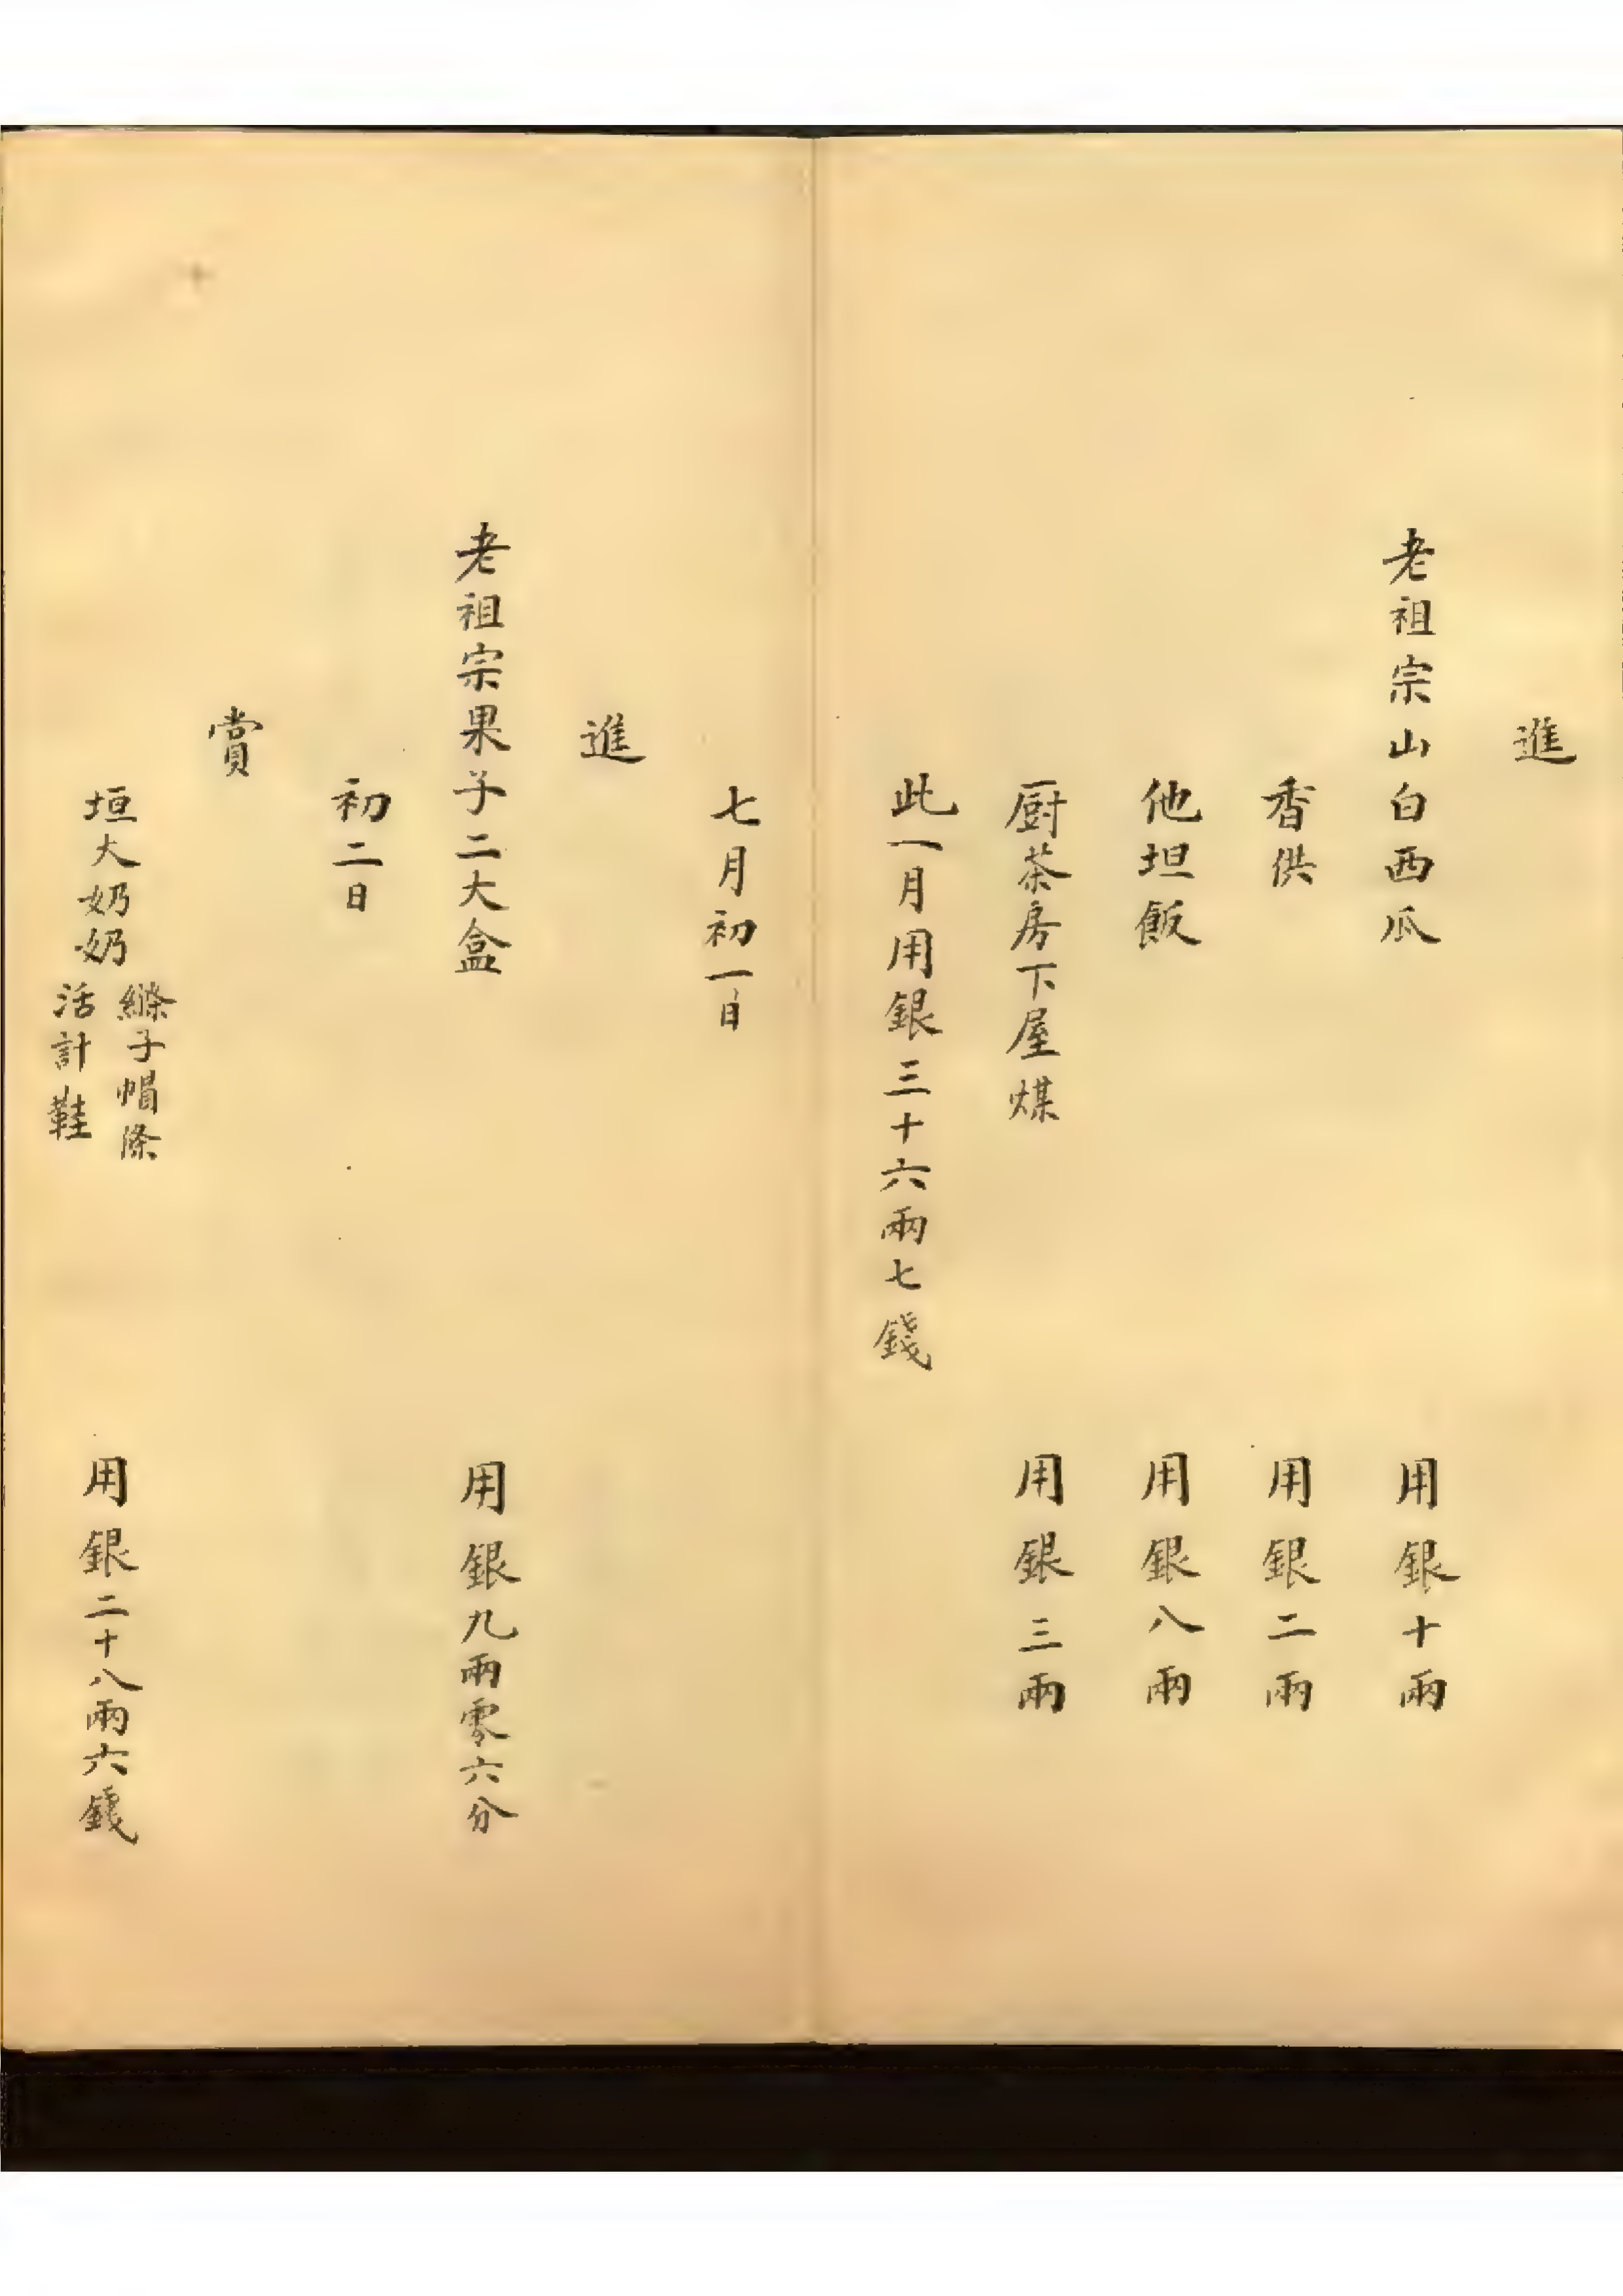 進
老祖宗山白西瓜 用銀十兩
香供 用銀二兩
他坦飯 用銀八兩
厨茶房下屋煤 用銀三兩
此一月用銀三十六兩七錢
七月初一日
進
老祖宗果子二大盒 用銀九兩零六分
初二日
賞
垣大奶奶 縧子帽條 活計鞋 用銀二十八兩六錢